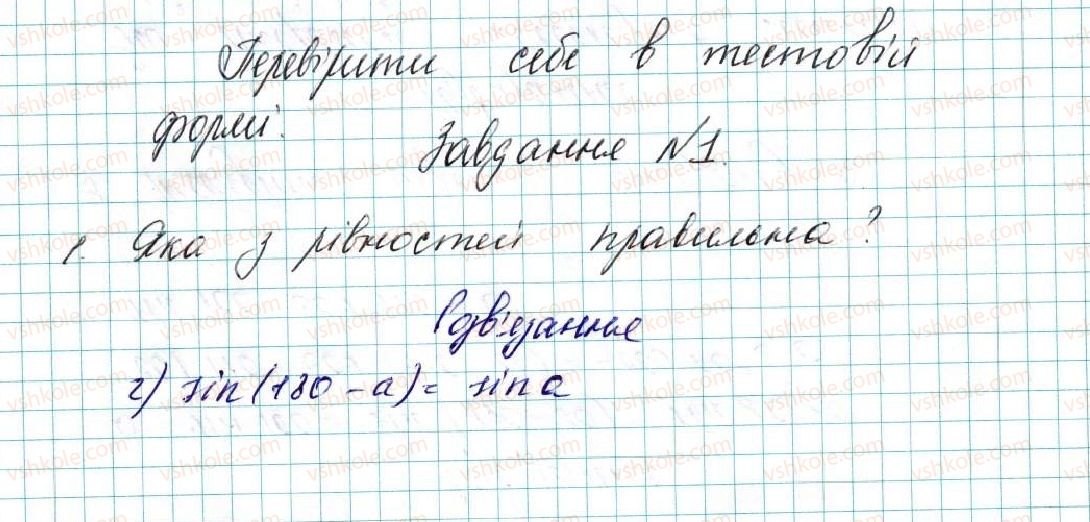 Перевірити себе в тестовій
формі.
Завдання №1.
1. Яка з рівностей правильна?
Розв'язання
г) sin(180-a)= sin a